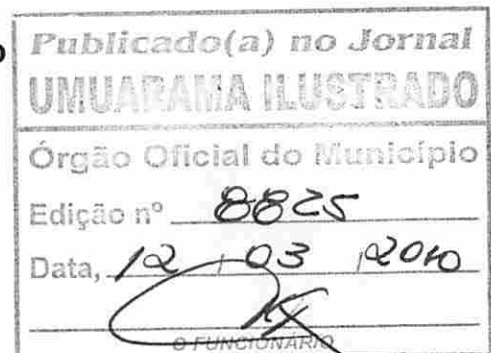 o
Publicado(a) no Jornal
UMUARAMA ILUSTRADO
Órgão Oficial do Município
Edição nº 8825
Data, 12 / 03 / 2010
O FUNCIONÁRIO